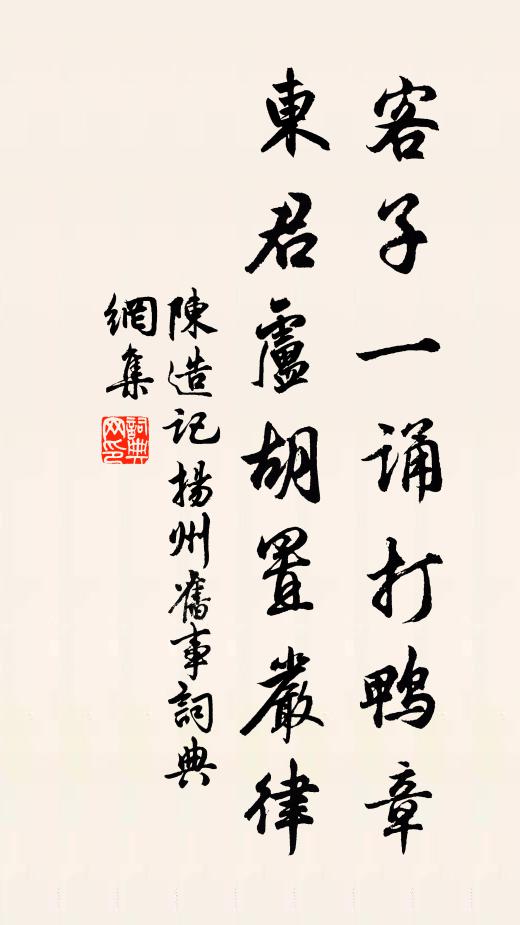 客子一誦打鴨章
東君盧胡置嚴律
陳造記揚州舊事詞典
網集
詞典
网印